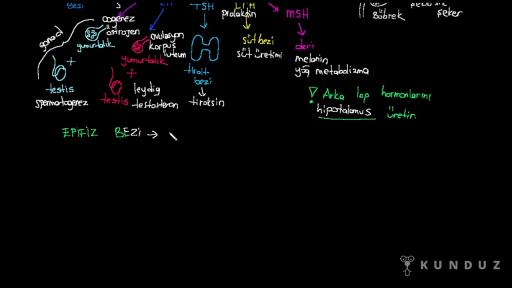 TSH
prolaktin
MSH
Böbrek
şeker
oogenez
östrojen
yumurtalık
gonad
testis
spermatogenez
ovulasyon
korpus
luteum
yumurtalık
testis
leydig
testosteron
tiroit
bezi
tiroksin
süt bezi
süt üretimi
deri
melanin
yağ metabolizma
Arka lop hormonlarını
hipotalamus üretir
EPİFİZ BEZİ →
KUNDUZ